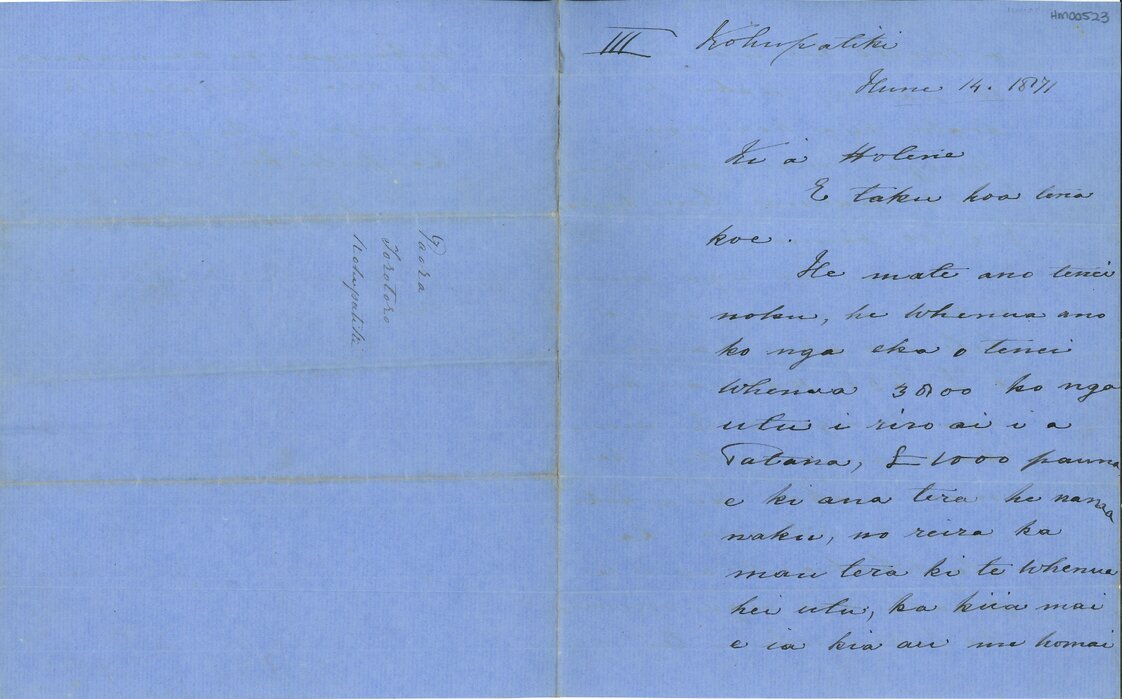 HM00523
III Kohupatiki
Hune 14. 1871
Ki a Holene
E taku hoa tena
koe.
He mate ano tenei
noku, he whenua ano
ko nga eka o tenei
whenua 3800 ko nga
utu i riro ai i a
Tatana, £1000 pauna
e ki ana tera he nama
naku, no reira ka
mau tera ki te whenua
hei utu, ka kiia mai
e ia kia au me homai
Paora
Torotoro
Kohupatiki